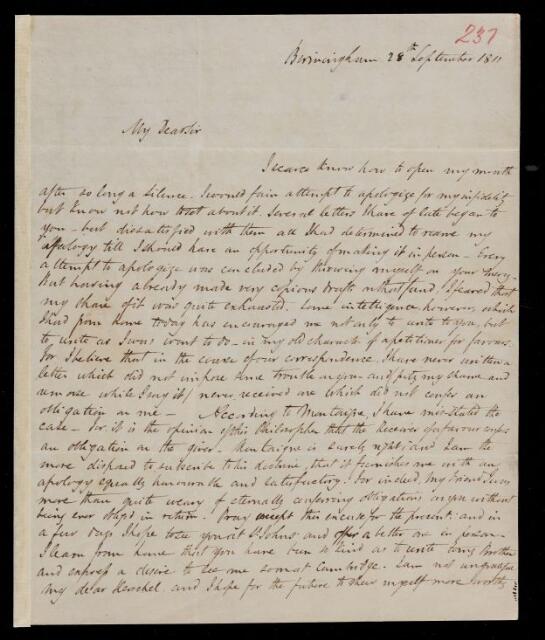 237
Birmingham 28th September 1811
My Dear Sir
I scarce know how to open my mouth
after so long a silence. I would fain attempt to apologize for my
but know not how to set about it. Several letters I have of late began to
you - but dissatisfied with them all I had determined to reserve my
apology till I should have an opportunity of making it in person - Every
attempt to apologize was concluded by throwing myself on your mercy -
But having already made very copious drafts on that fund, I feared that
my share of it was quite exhausted. Some intelligence however, which
I had from home today has encouraged me not only to write to you, but
to write as I was wont to do - in my old character of a petitioner for favours.
For I believe that in the course of our correspondence, I have never written a
letter which did not impose some trouble on you - and (pity my shame and
remorse while I say it) never received one which did not confer an
obligation on me - According to Montaigne, I have mis-stated the
case - for it is the opinion of this Philosopher that the receiver of a favour confers
an obligation on the giver - Montaigne is surely right; and I am the
more disposed to subscribe to this doctrine, that it furnishes me with an
apology equally honourable and satisfactory! For indeed, my friend I was
more than quite weary of eternally conferring obligations on you without
being ever obliged in return. Pray accept this excuse for the present: and in
a few days I hope to see you at St Johns and offer a better one in person.
I learn from home that you have been so kind as to write to my brother
and express a desire to see me soon at Cambridge. I am not ungrateful
my dear Herschel. and I hope for the future to shew myself more worthy